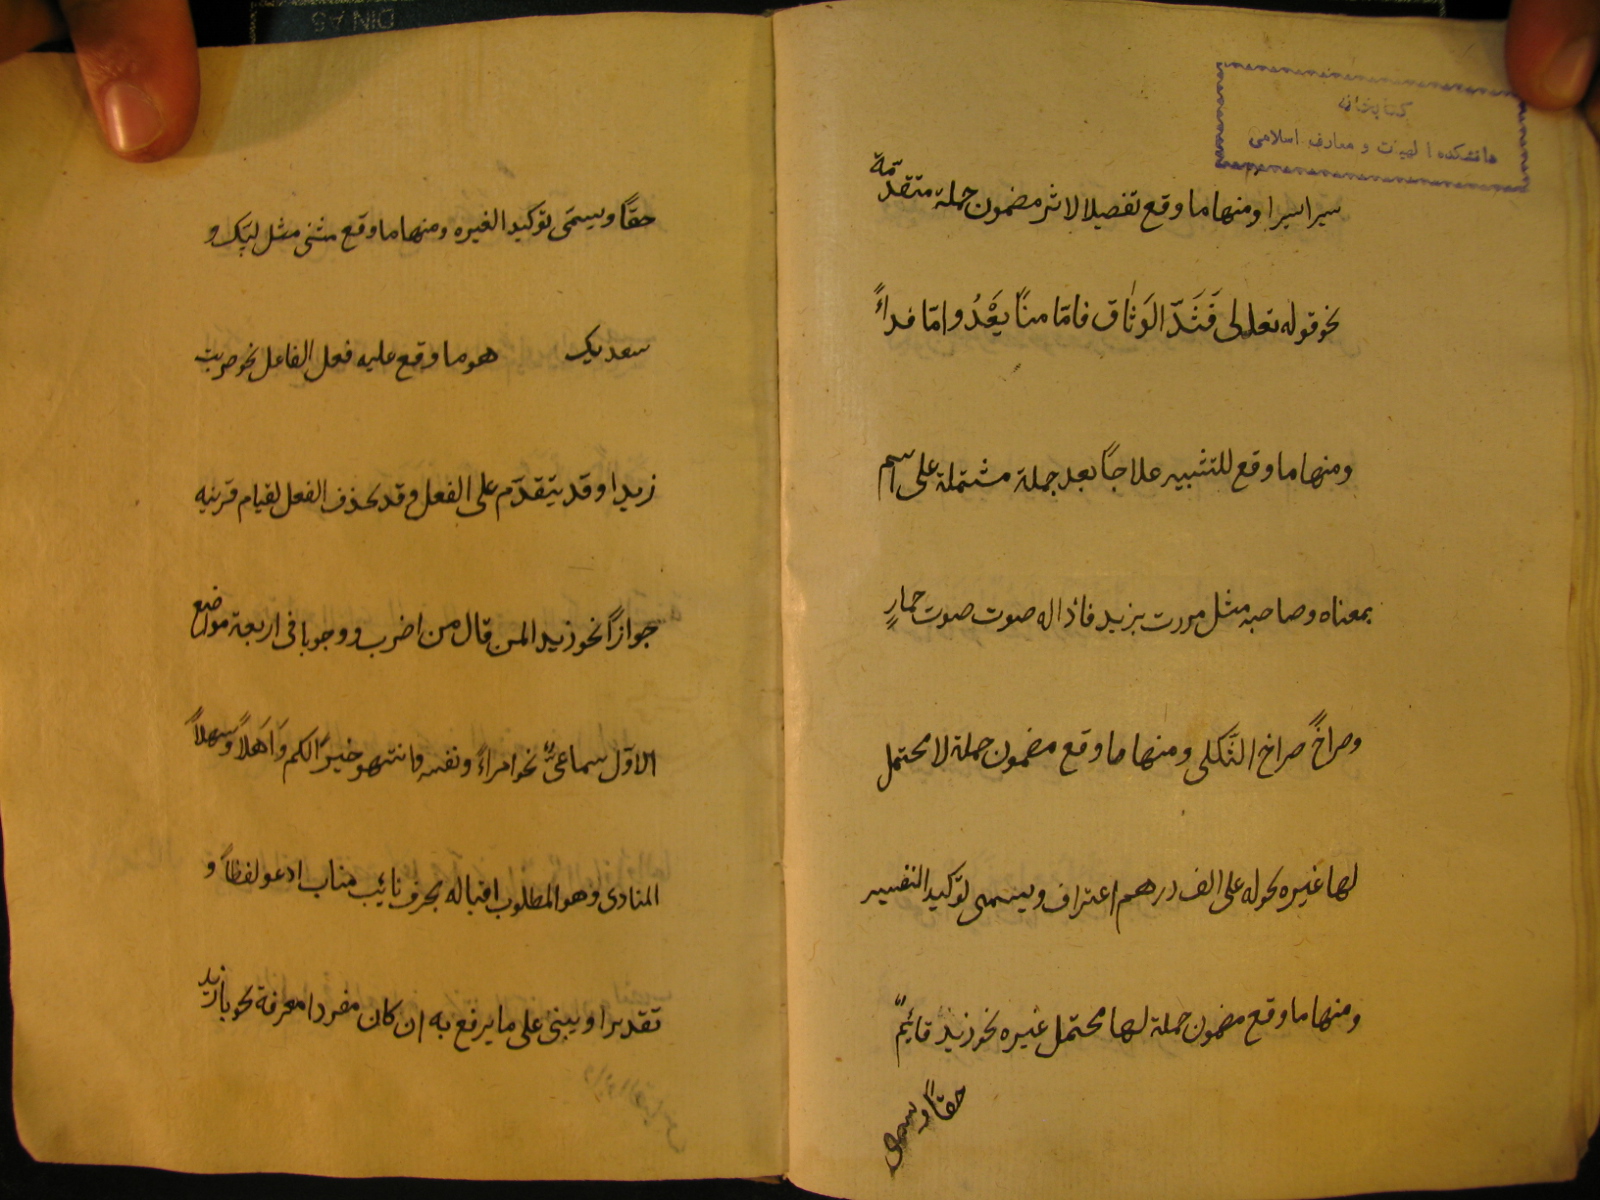 كتابخانه
دانشكده الهيات و معارف اسلامى
سيراسيرا ومنها ما وقع تفصيلا لاثر مضمون جملة متقدّمة
نحو قوله تعالى فَشَدّ الوَثاق فامّا منّا بَعْدُ وامّا فداءً
ومنها ما وقع للتشبيه علاجًا بعد جملة مشتملة على اسم
بمعناه وصاحبه مثل مررت بزيد فاذا له صوت صوت حمارٍ
وصراخً صراخ الثَّكلى ومنها ما وقع مضمون جملة لا محتمل
لها غيره نحو له على الف درهم اعترافا ويسمى توكيدا لنفسه
ومنها ما وقع مضمون جملة لها محتمل غيره نحو زيدٌ قائمٌ
حقًّا ويسمى
حقًّا ويسمّى توكيدا لغيره ومنها ما وقع مثنى مثل لبّيك و
سعديك هو ما وقع عليه فعل الفاعل نحو ضربت
زيدا وقد يتقدّم على الفعل وقد يحذف الفعل لقيام قرينه
جوازًا نحو زيدا لمن قال من اضرب ووجوبا فى اربعة مواضع
الاوّل سماعىٌّ نحو امراءً ونفسه وانتهو خيرًا لكم وَاَهلاً وَسهلاً
المنادى وهو المطلوب اقباله بحرف نائب مناب ادعو لفظاً و
تقديرا ويبنى على ما يرفع به ان كان مفردا معرفة نحو يا زيد